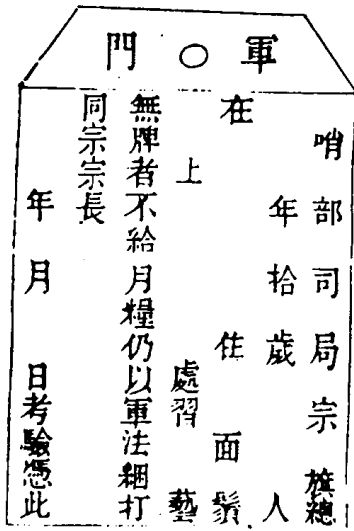 軍○門
哨部司局宗旗總
年拾歲人
在住面鬚
上處習藝
無牌者不給月糧仍以軍法綑打
同宗宗長
年月日考驗憑此